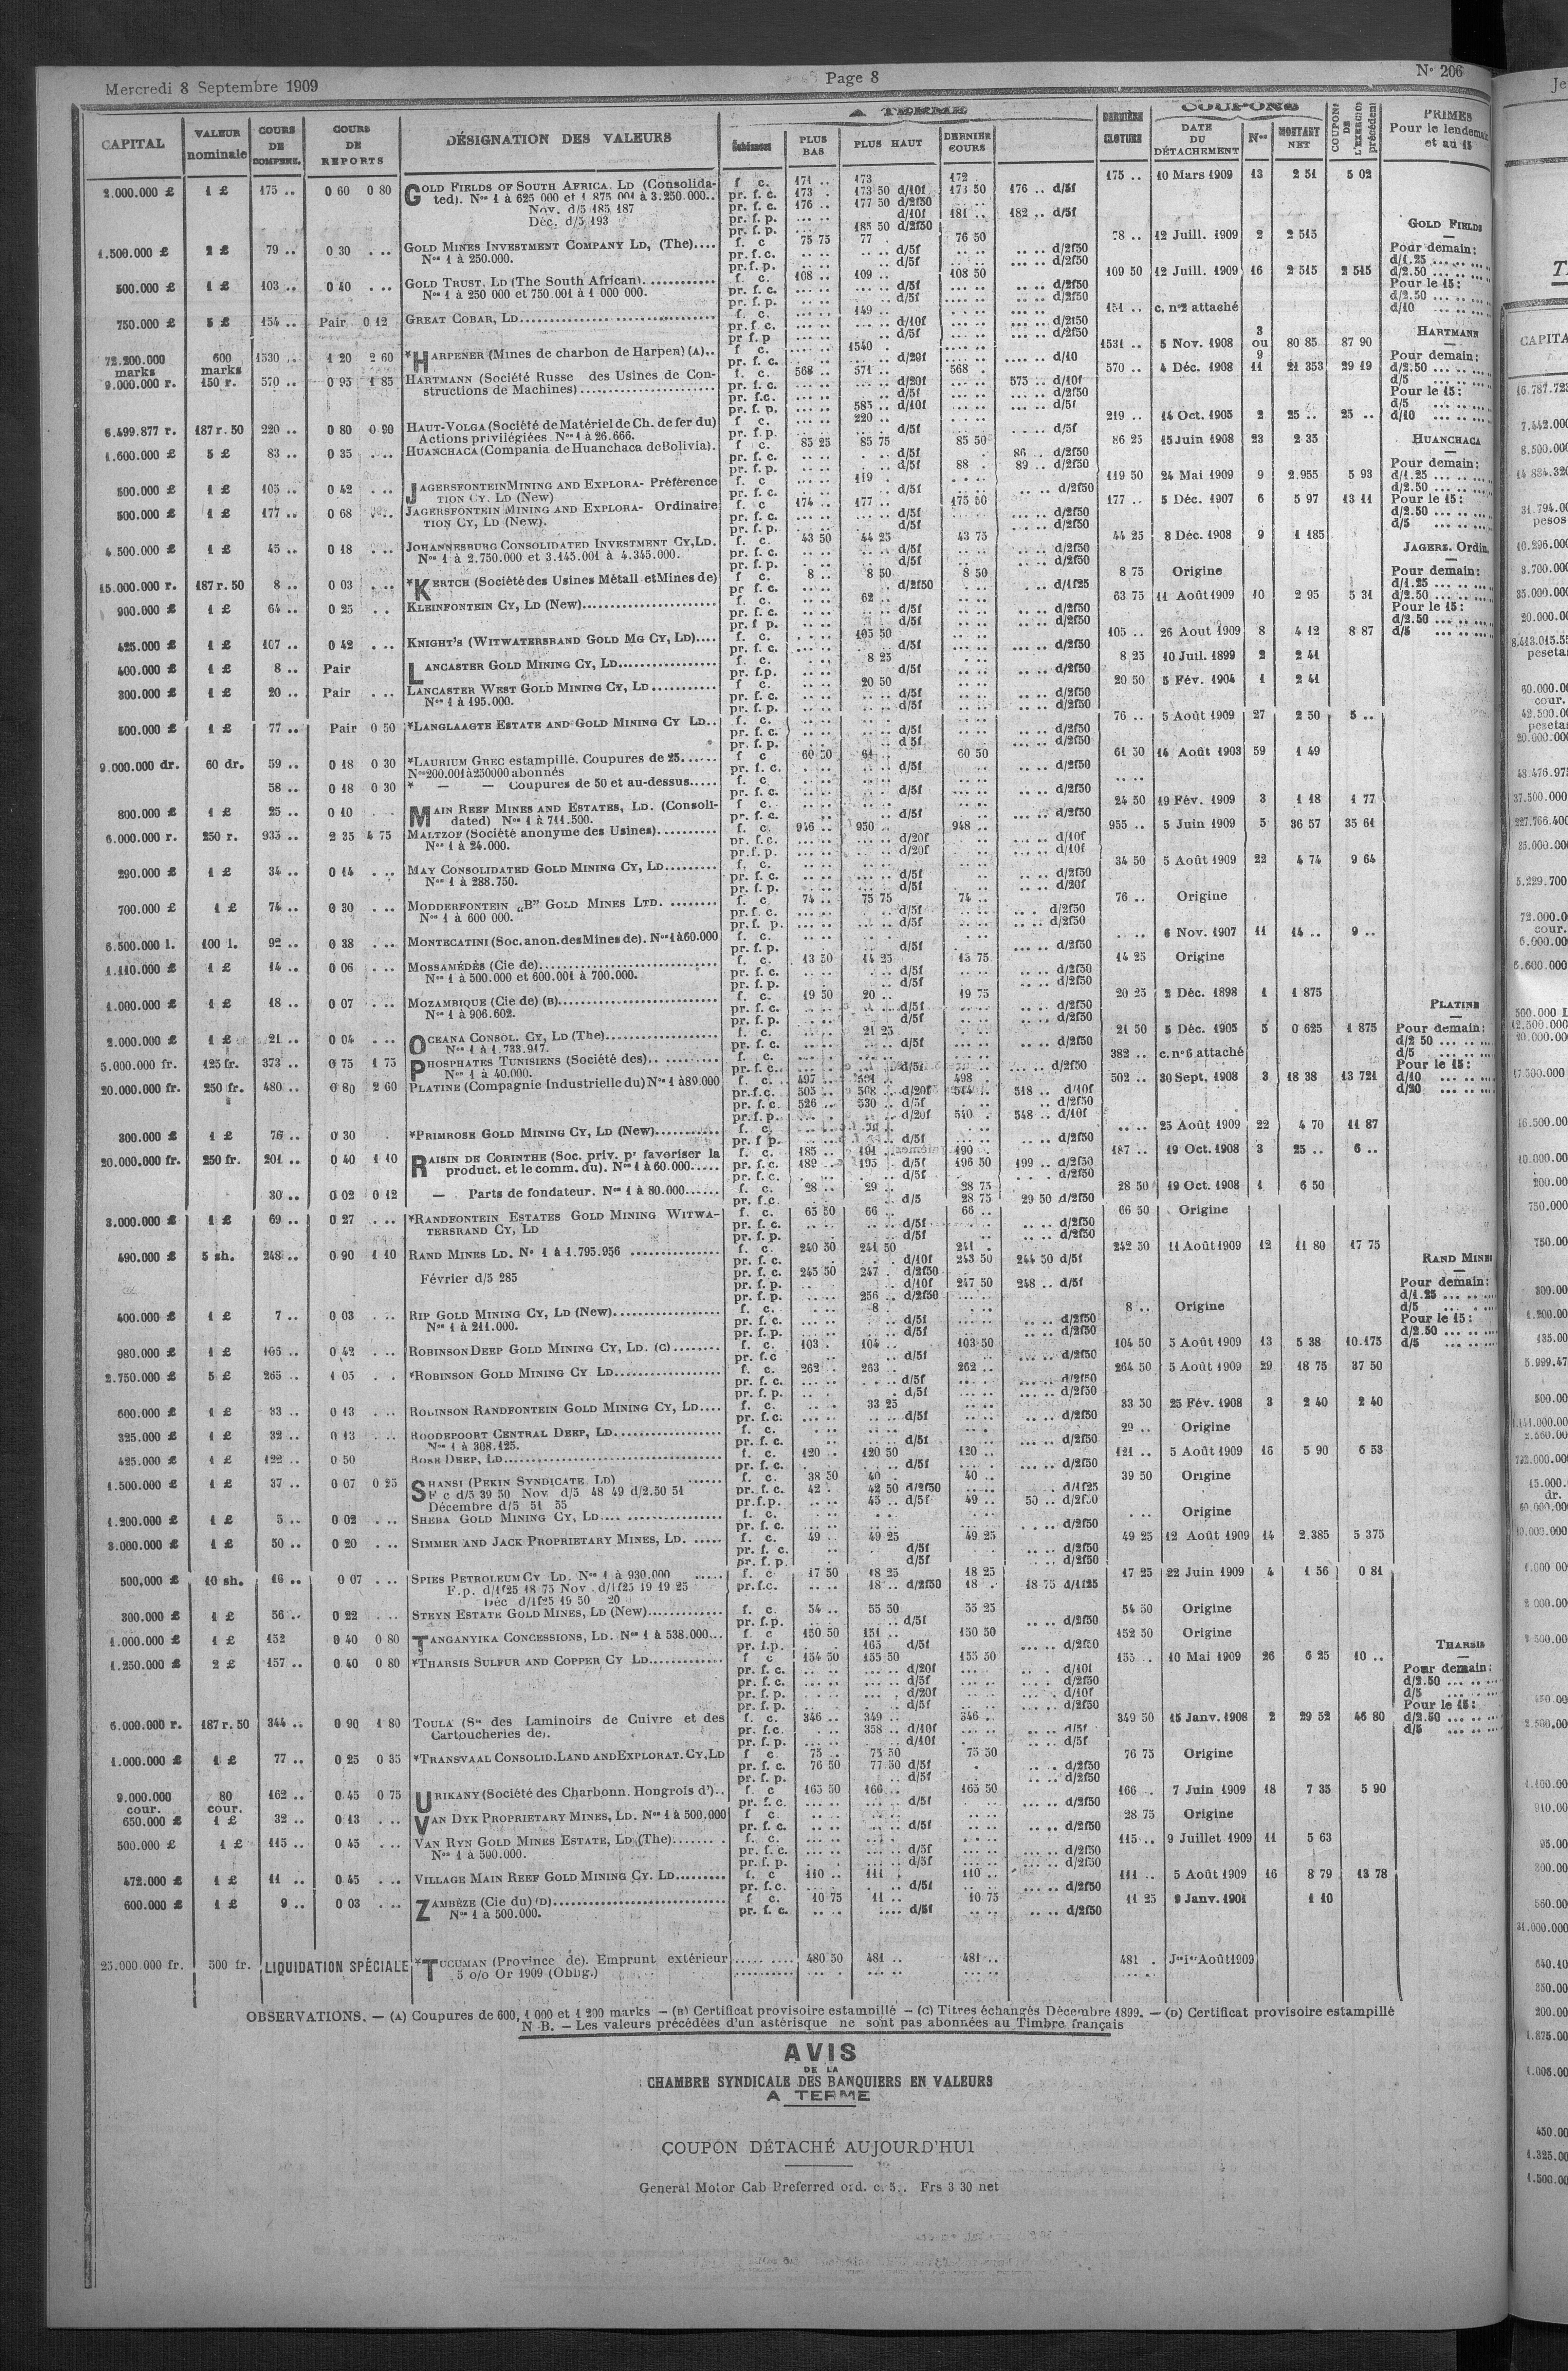 Mercredi 8 Septembre 1909
Page 8
N° 206
CAPITAL
VALEUR nominale
COURS DE COMPENS.
COURS DE REPORTS
DÉSIGNATION DES VALEURS
A TERME
Échéances
PLUS BAS
PLUS HAUT
DERNIER COURS
DERNIÈRE CLOTURE
COUPONS
DATE DU DÉTACHEMENT
Nos
MONTANT NET
COUPONS DE L'EXERCICE précédent
PRIMES
Pour le lendemain
et au 15
2.000.000 £ 1 £ 175 .. 0 60 0 80 GOLD FIELDS OF SOUTH AFRICA. LD (Consolida- f c. 171 .. 173 172 . 175 .. 10 Mars 1909 13 2 51 5 02
ted). Nos 1 à 625 000 et 1 875 001 à 3.250.000.. pr. f. c. 173 . 173 50 d/10f 173 50 176 .. d/5f
Nov. d/5 185 187 pr. f. c. 176 .. 177 50 d/2f50
Déc. d/5 193 pr. f. p. d/10f 181 .. 182 .. d/5f
pr. f. p. 185 50 d/2f50
1.500.000 £ 2 £ 79 .. 0 30 ... GOLD MINES INVESTMENT COMPANY LD, (The).... f. c 75 75 77 . 76 50 78 .. 12 Juill. 1909 2 2 515
Nos 1 à 250.000. pr. f. c. d/5f d/2f50
pr. f. p. d/5f d/2f50
500.000 £ 1 £ 103 .. 0 40 ... GOLD TRUST. LD (The South African). f. c. 108 .. 109 .. 108 50 109 50 12 Juill. 1909 16 2 515 2 515
Nos 1 à 250 000 et 750.001 à 1 000 000. pr. f. c. d/5f d/2f50
pr. f. p. d/5f d/2f50
750.000 £ 5 £ 154 .. Pair 0 12 GREAT COBAR, LD f. c. 149 .. 151 .. c. n°2 attaché
pr. f. c. d/10f d/2f50
pr f. p d/5f d/2f50
72.200.000 marks 600 marks 1530 .. 1 20 2 60 *HARPENER (Mines de charbon de Harpen) (A).. f c. 1540 .. 1531 .. 5 Nov. 1908 3 ou 9 80 85 87 90
pr. f. c. d/20f d/10
9.000.000 r. 150 r. 570 .. 0 95 1 85 HARTMANN (Société Russe des Usines de Con- f. c. 568 .. 571 .. 568 . 570 .. 4 Déc. 1908 11 21 353 29 19
structions de Machines) pr. f. c. d/20f 575 .. d/10f
pr. f.c. d/5f d/2f50
pr. f. p. 585 .. d/10f d/5f
6.499.877 r. 187 r. 50 220 .. 0 80 0 90 HAUT-VOLGA (Société de Matériel de Ch. de fer du) f. c. 220 .. 219 .. 14 Oct. 1905 2 25 .. 25 ..
Actions privilégiées Nos 1 à 26.666. pr. f. p. d/5f d/5f
1.600.000 £ 5 £ 83 .. 0 35 .... HUANCHACA (Compania de Huanchaca de Bolivia). f c. 85 25 85 75 85 50 86 25 15 Juin 1908 23 2 35
pr. f. c. d/5f 86 .. d/2f50
pr. f. p. d/5f 88 . 89 .. d/2f50
500.000 £ 1 £ 105 .. 0 42 ... JAGERSFONTEIN MINING AND EXPLORA- Préférence f c 119 . 119 50 24 Mai 1909 9 2.955 5 93
TION CY. LD (New) pr. f. c. d/5f d/2f50
500.000 £ 1 £ 177 .. 0 68 JAGERSFONTEIN MINING AND EXPLORA- Ordinaire f. c 174 .. 177 .. 175 50 177 .. 5 Déc. 1907 6 5 97 13 11
TION CY, LD (New). pr. f. c. d/5f d/2f50
pr. f. p. d/5f d/2f50
4.500.000 £ 1 £ 45 .. 0 18 ... JOHANNESBURG CONSOLIDATED INVESTMENT CY, LD. f. c. 43 50 44 25 43 75 44 25 8 Déc. 1908 9 1 185
Nos 1 à 2.750.000 et 3.145.001 à 4.345.000. pr. f. c. d/5f d/2f50
pr. f. p. d/5f d/2f50
15.000.000 r. 187 r. 50 8 .. 0 03 ... *KERTCH (Société des Usines Métall et Mines de) f c. 8 .. 8 50 8 50 8 75 Origine
pr f. c. d/2f50 d/1f25
900.000 £ 1 £ 64 .. 0 25 .. KLEINFONTEIN CY, LD (New) f. c. 62 .. 63 75 11 Août 1909 10 2 95 5 31
pr. f. c. d/5f d/2f50
pr. f p. d/5f d/2f50
425.000 £ 1 £ 107 .. 0 42 ... KNIGHT'S (WITWATERSRAND GOLD MG CY, LD).... f. c. 105 50 105 .. 26 Aout 1909 8 4 12 8 87
pr. f. c. d/5f d/2f50
400.000 £ 1 £ 8 .. Pair LANCASTER GOLD MINING CY, LD f. c. 8 25 8 25 10 Juil. 1899 2 2 41
pr. f.p. d/5f d/2f50
300.000 £ 1 £ 20 .. Pair ... LANCASTER WEST GOLD MINING CY, LD f c. 20 50 20 50 5 Fév. 1904 1 2 41
Nos 1 à 195.000. pr. f. c. d/5f d/2f50
pr. f. p. d/5f d/2f50
500.000 £ 1 £ 77 .. Pair 0 50 *LANGLAAGTE ESTATE AND GOLD MINING CY LD.. f. c. 76 .. 5 Août 1909 27 2 50 5 ..
pr. f. c. d/5f d/2f50
pr. f. p. d 5f d/2f50
9.000.000 dr. 60 dr. 59 .. 0 18 0 30 *LAURIUM GREC estampillé. Coupures de 25...... f c 60 50 61 . 60 50 61 50 14 Août 1903 59 1 49
Nos 200.001 à 250000 abonnés pr. f. c. d/5f d/2f50
58 .. 0 18 0 30 * — — Coupures de 50 et au-dessus..... f. c
pr. f. c. d/5f d/2f50
800.000 £ 1 £ 25 .. 0 10 MAIN REEF MINES AND ESTATES, LD. (Consoli- f c. 24 50 19 Fév. 1909 3 1 18 1 77
dated) Nos 1 à 711.500. pr. f. c. d/5f d/2f50
6.000.000 r. 250 r. 935 .. 2 35 4 75 MALTZOF (Société anonyme des Usines). f. c. 946 .. 950 .. 948 .. 955 .. 5 Juin 1909 5 36 57 35 61
Nos 1 à 24.000. pr. f. c. d/20f d/10f
pr. f. p. d/20f d/10f
290.000 £ 1 £ 34 .. 0 14 ... MAY CONSOLIDATED GOLD MINING CY, LD f. c. 34 50 5 Août 1909 22 4 74 9 64
Nos 1 à 288.750. pr. f. c. d/5f d/2f50
pr. f. p. d/5f d/20f
700.000 £ 1 £ 74 .. 0 30 ... MODDERFONTEIN „B" GOLD MINES LTD. f. c 74 .. 75 75 74 .. 76 .. Origine
Nos 1 à 600 000. pr. f. c. d/5f d/2f50
pr. f. p. d/5f d/2f50
6.500.000 l. 100 l. 92 .. 0 38 ... MONTECATINI (Soc. anon. des Mines de). Nos 1 à 60.000 f. c. 6 Nov. 1907 11 14 .. 9 ..
pr. f. p. d/5f d/2f50
1.110.000 £ 1 £ 14 .. 0 06 ... MOSSAMÉDÈS (Cie de) f. c. 13 50 14 25 13 75 14 25 Origine
Nos 1 à 500.000 et 600.001 à 700.000. pr. f. c. d/5f d/2f50
pr. f. p. d/5f d/2f50
1.000.000 £ 1 £ 18 .. 0 07 ... MOZAMBIQUE (Cie de) (B) f. c. 19 50 20 .. 19 75 20 25 2 Déc. 1898 1 1 875
Nos 1 à 906.602. pr. f. c. d/5f d/2f50
pr. f. p. d/5f d/2f50
2.000.000 £ 1 £ 21 .. 0 04 ... OCEANA CONSOL. CY, LD (The) f. c. 21 25 21 50 5 Déc. 1905 5 0 625 1 875
Nos 1 à 1.733.917. pr. f. c. d/5f d/2f50
5.000.000 fr. 125 fr. 373 .. 0 75 1 75 PHOSPHATES TUNISIENS (Société des).. f. c. 382 .. c. n°6 attaché
Nos 1 à 40.000. pr. f. c. d/5f d/2f50
20.000.000 fr. 250 fr. 480 .. 0 80 2 60 PLATINE (Compagnie Industrielle du) Nos 1 à 89.000 f. c. 497 .. 501 .. 498 . 502 .. 30 Sept. 1908 3 18 38 13 721
pr. f. c. 505 .. 508 .. d/20f 514 .. 518 .. d/10f
pr. f. c. 526 .. 530 .. d/5f d/2f50
pr. f. p. d/20f 540 . 548 .. d/10f
300.000 £ 1 £ 76 .. 0 30 *PRIMROSE GOLD MINING CY, LD (New) f. c. 25 Août 1909 22 4 70 11 87
pr. f p. d/5f d/2f50
20.000.000 fr. 250 fr. 201 .. 0 40 1 10 RAISIN DE CORINTHE (Soc. priv. pr favoriser la f. c. 185 .. 191 190 .. 187 .. 19 Oct. 1908 3 25 .. 6 ..
product. et le comm. du). Nos 1 à 60.000 pr. f. c. 189 .. 195 d/5f 196 50 199 .. d/2f50
pr. f. c. d/5f d/2f50
30 .. 0 02 0 12 — Parts de fondateur. Nos 1 à 80.000 f. c. 28 .. 29 .. 28 75 28 50 19 Oct. 1908 1 6 50
pr. f.c. d/5 28 75 29 50 d/2f50
3.000.000 £ 1 £ 69 .. 0 27 ... *RANDFONTEIN ESTATES GOLD MINING WITWA- f. c. 65 50 66 .. 66 .. 66 50 Origine
TERSRAND CY, LD pr. f. c. d/5f d/2f50
pr. f. p. d/5f d/2f50
490.000 £ 5 sh. 248 .. 0 90 1 10 RAND MINES LD. No 1 à 1.795.956 f. c. 240 50 241 50 241 . 242 50 11 Août 1909 12 11 80 17 75
pr. f. c. d/10f 243 50 244 50 d/5f
Février d/5 285 pr. f. c. 245 50 247 . d/2f50
pr. f. p. d/10f 247 50 248 .. d/5f
pr. f. p. 256 .. d/2f50
400.000 £ 1 £ 7 .. 0 03 ... RIP GOLD MINING CY, LD (New) f c. 8 . 8 .. Origine
Nos 1 à 211.000. pr. f. c. d/5f d/2f50
pr. f. p. d/5f d/2f50
980.000 £ 1 £ 105 .. 0 42 ... ROBINSON DEEP GOLD MINING CY, LD. (C) f. c. 103 . 104 .. 103 50 104 50 5 Août 1909 13 5 38 10.175
pr. f. c d/5f d/2f50
2.750.000 £ 5 £ 265 .. 1 05 .. *ROBINSON GOLD MINING CY LD f. c. 262 . 263 . 262 .. 264 50 5 Août 1909 29 18 75 37 50
pr. f. c. d/5f d/2f50
pr. f. p. d/5f d/2f50
600.000 £ 1 £ 33 .. 0 13 ... ROBINSON RANDFONTEIN GOLD MINING CY, LD.... f. c. 33 25 33 50 25 Fév. 1908 3 2 40 2 40
pr. f. c. d/5f d/2f50
325.000 £ 1 £ 32 .. 0 13 ... ROODEPOORT CENTRAL DEEP, LD f. c. 29 .. Origine
Nos 1 à 308.125. pr. f. c. d/5f d/2f50
425.000 £ 1 £ 122 .. 0 50 ROSE DEEP, LD f. c. 120 .. 120 50 120 .. 121 .. 5 Août 1909 16 5 90 6 53
pr. f. c. d/5f d/2f50
1.500.000 £ 1 £ 37 .. 0 07 0 25 SHANSI (PEKIN SYNDICATE LD) f. c. 38 50 40 . 40 .. 39 50 Origine
F c d/5 39 50 Nov d/5 48 49 d/2.50 51 pr. f. c. 42 . 42 50 d/2f50 d/1f25
Décembre d/5 51 55 pr. f. p. 45 .. d/5f 49 .. 50 .. d/2f50
1.200.000 £ 1 £ 5 .. 0 02 ... SHEBA GOLD MINING CY, LD f. c. Origine
pr. f. c. d/2f50
3.000.000 £ 1 £ 50 .. 0 20 ... SIMMER AND JACK PROPRIETARY MINES, LD. f. c. 49 . 49 25 49 25 49 25 12 Août 1909 14 2.385 5 375
pr. f. c. d/5f d/2f50
pr. f. p. d/5f d/2f50
500,000 £ 10 sh. 16 .. 0 07 ... SPIES PETROLEUM CY LD. Nos 1 à 930.000 f. c 17 50 18 25 18 25 17 25 22 Juin 1909 4 1 56 0 81
F.p. d/1f25 18 75 Nov. d/1f25 19 19 25 pr. f.c. 18 .. d/2f50 18 . 18 75 d/1f25
Déc d/1f25 19 50 20
300.000 £ 1 £ 56 .. 0 22 ... STEYN ESTATE GOLD MINES, LD (New) f. c. 54 .. 55 50 55 25 54 50 Origine
pr. f.p. d/5f d/2f50
1.000.000 £ 1 £ 152 0 40 0 80 TANGANYIKA CONCESSIONS, LD. Nos 1 à 538.000... f. c 150 50 151 .. 150 50 152 50 Origine
pr. f.p. 165 d/5f d/2f50
1.250.000 £ 2 £ 157 .. 0 40 0 80 *THARSIS SULFUR AND COPPER CY LD f c 154 50 155 50 155 50 155 .. 10 Mai 1909 26 6 25 10 ..
pr. f. c. d/20f d/10f
pr. f. c. d/5f d/2f50
pr. f. p. d/20f d/10f
pr. f. p. d/5f d/2f50
6.000.000 r. 187 r. 50 344 .. 0 90 1 80 TOULA (Sté des Laminoirs de Cuivre et des f. c. 346 .. 349 .. 346 .. 349 50 15 Janv. 1908 2 29 52 46 80
Cartoucheries de). pr. f.c. 358 .. d/10f d/5f
pr. f. p. d/10f d/5f
1.000.000 £ 1 £ 77 .. 0 25 0 35 *TRANSVAAL CONSOLID. LAND AND EXPLORAT. CY, LD f c. 75 .. 75 50 75 50 76 75 Origine
pr. f. c. 76 50 77 50 d/5f d/2f50
pr. f. p. d/5f d/2f50
9.000.000 cour. 80 cour. 162 .. 0 45 0 75 URIKANY (Société des Charbonn. Hongrois d').. f. c 165 50 166 .. 165 50 166 .. 7 Juin 1909 18 7 35 5 90
pr. f. c. d/5f d/2f50
650.000 £ 1 £ 32 .. 0 13 ... VAN DYK PROPRIETARY MINES, LD. Nos 1 à 500.000 f c. 28 75 Origine
pr. f. c. d/5f d/2f50
500.000 £ 1 £ 115 .. 0 45 ... VAN RYN GOLD MINES ESTATE, LD (The) f. c. 115 .. 9 Juillet 1909 11 5 63
Nos 1 à 500.000. pr. f. c. d/5f d/2f50
pr. f. p. d/5f d/2f50
472.000 £ 1 £ 11 .. 0 45 ... VILLAGE MAIN REEF GOLD MINING CY. LD f. c 110 .. 111 . 110 .. 111 .. 5 Août 1909 16 8 79 13 78
pr. f.c. d/5f d/2f50
600.000 £ 1 £ 9 .. 0 03 ... ZAMBÈZE (Cie du) (D) f c. 10 75 11 .. 10 75 11 25 9 Janv. 1901 1 10
Nos 1 à 500.000. pr. f. c. d/5f d/2f50
25.000.000 fr. 500 fr. LIQUIDATION SPÉCIALE *TUCUMAN (Province de). Emprunt extérieur 480 50 481 .. 481 .. 481 . Jce 1er Août 1909
5 o/o Or 1909 (Oblig.)
GOLD FIELDS
Pour demain:
d/1.25
d/2.50
Pour le 15:
d/2.50
d/10
HARTMANN
Pour demain:
d/2.50
d/5
Pour le 15:
d/5
d/10
HUANCHACA
Pour demain:
d/1.25
d/2.50
Pour le 15:
d/2.50
d/5
JAGERS. Ordin.
Pour demain:
d/1.25
d/2.50
Pour le 15:
d/2.50
d/5
PLATINE
Pour demain:
d/2 50
d/5
Pour le 15:
d/10
d/20
RAND MINES
Pour demain:
d/1.25
d/5
Pour le 15:
d/2.50
d/5
THARSIS
Pour demain:
d/2.50
d/5
Pour le 15:
d/2.50
d/5
OBSERVATIONS. — (A) Coupures de 600, 1 000 et 1 200 marks — (B) Certificat provisoire estampillé — (C) Titres échangés Décembre 1899. — (D) Certificat provisoire estampillé
N.-B. — Les valeurs précédées d'un astérisque ne sont pas abonnées au Timbre français
AVIS
DE LA
CHAMBRE SYNDICALE DES BANQUIERS EN VALEURS
A TERME
COUPON DÉTACHÉ AUJOURD'HUI
General Motor Cab Preferred ord. c. 5.. Frs 3 30 net